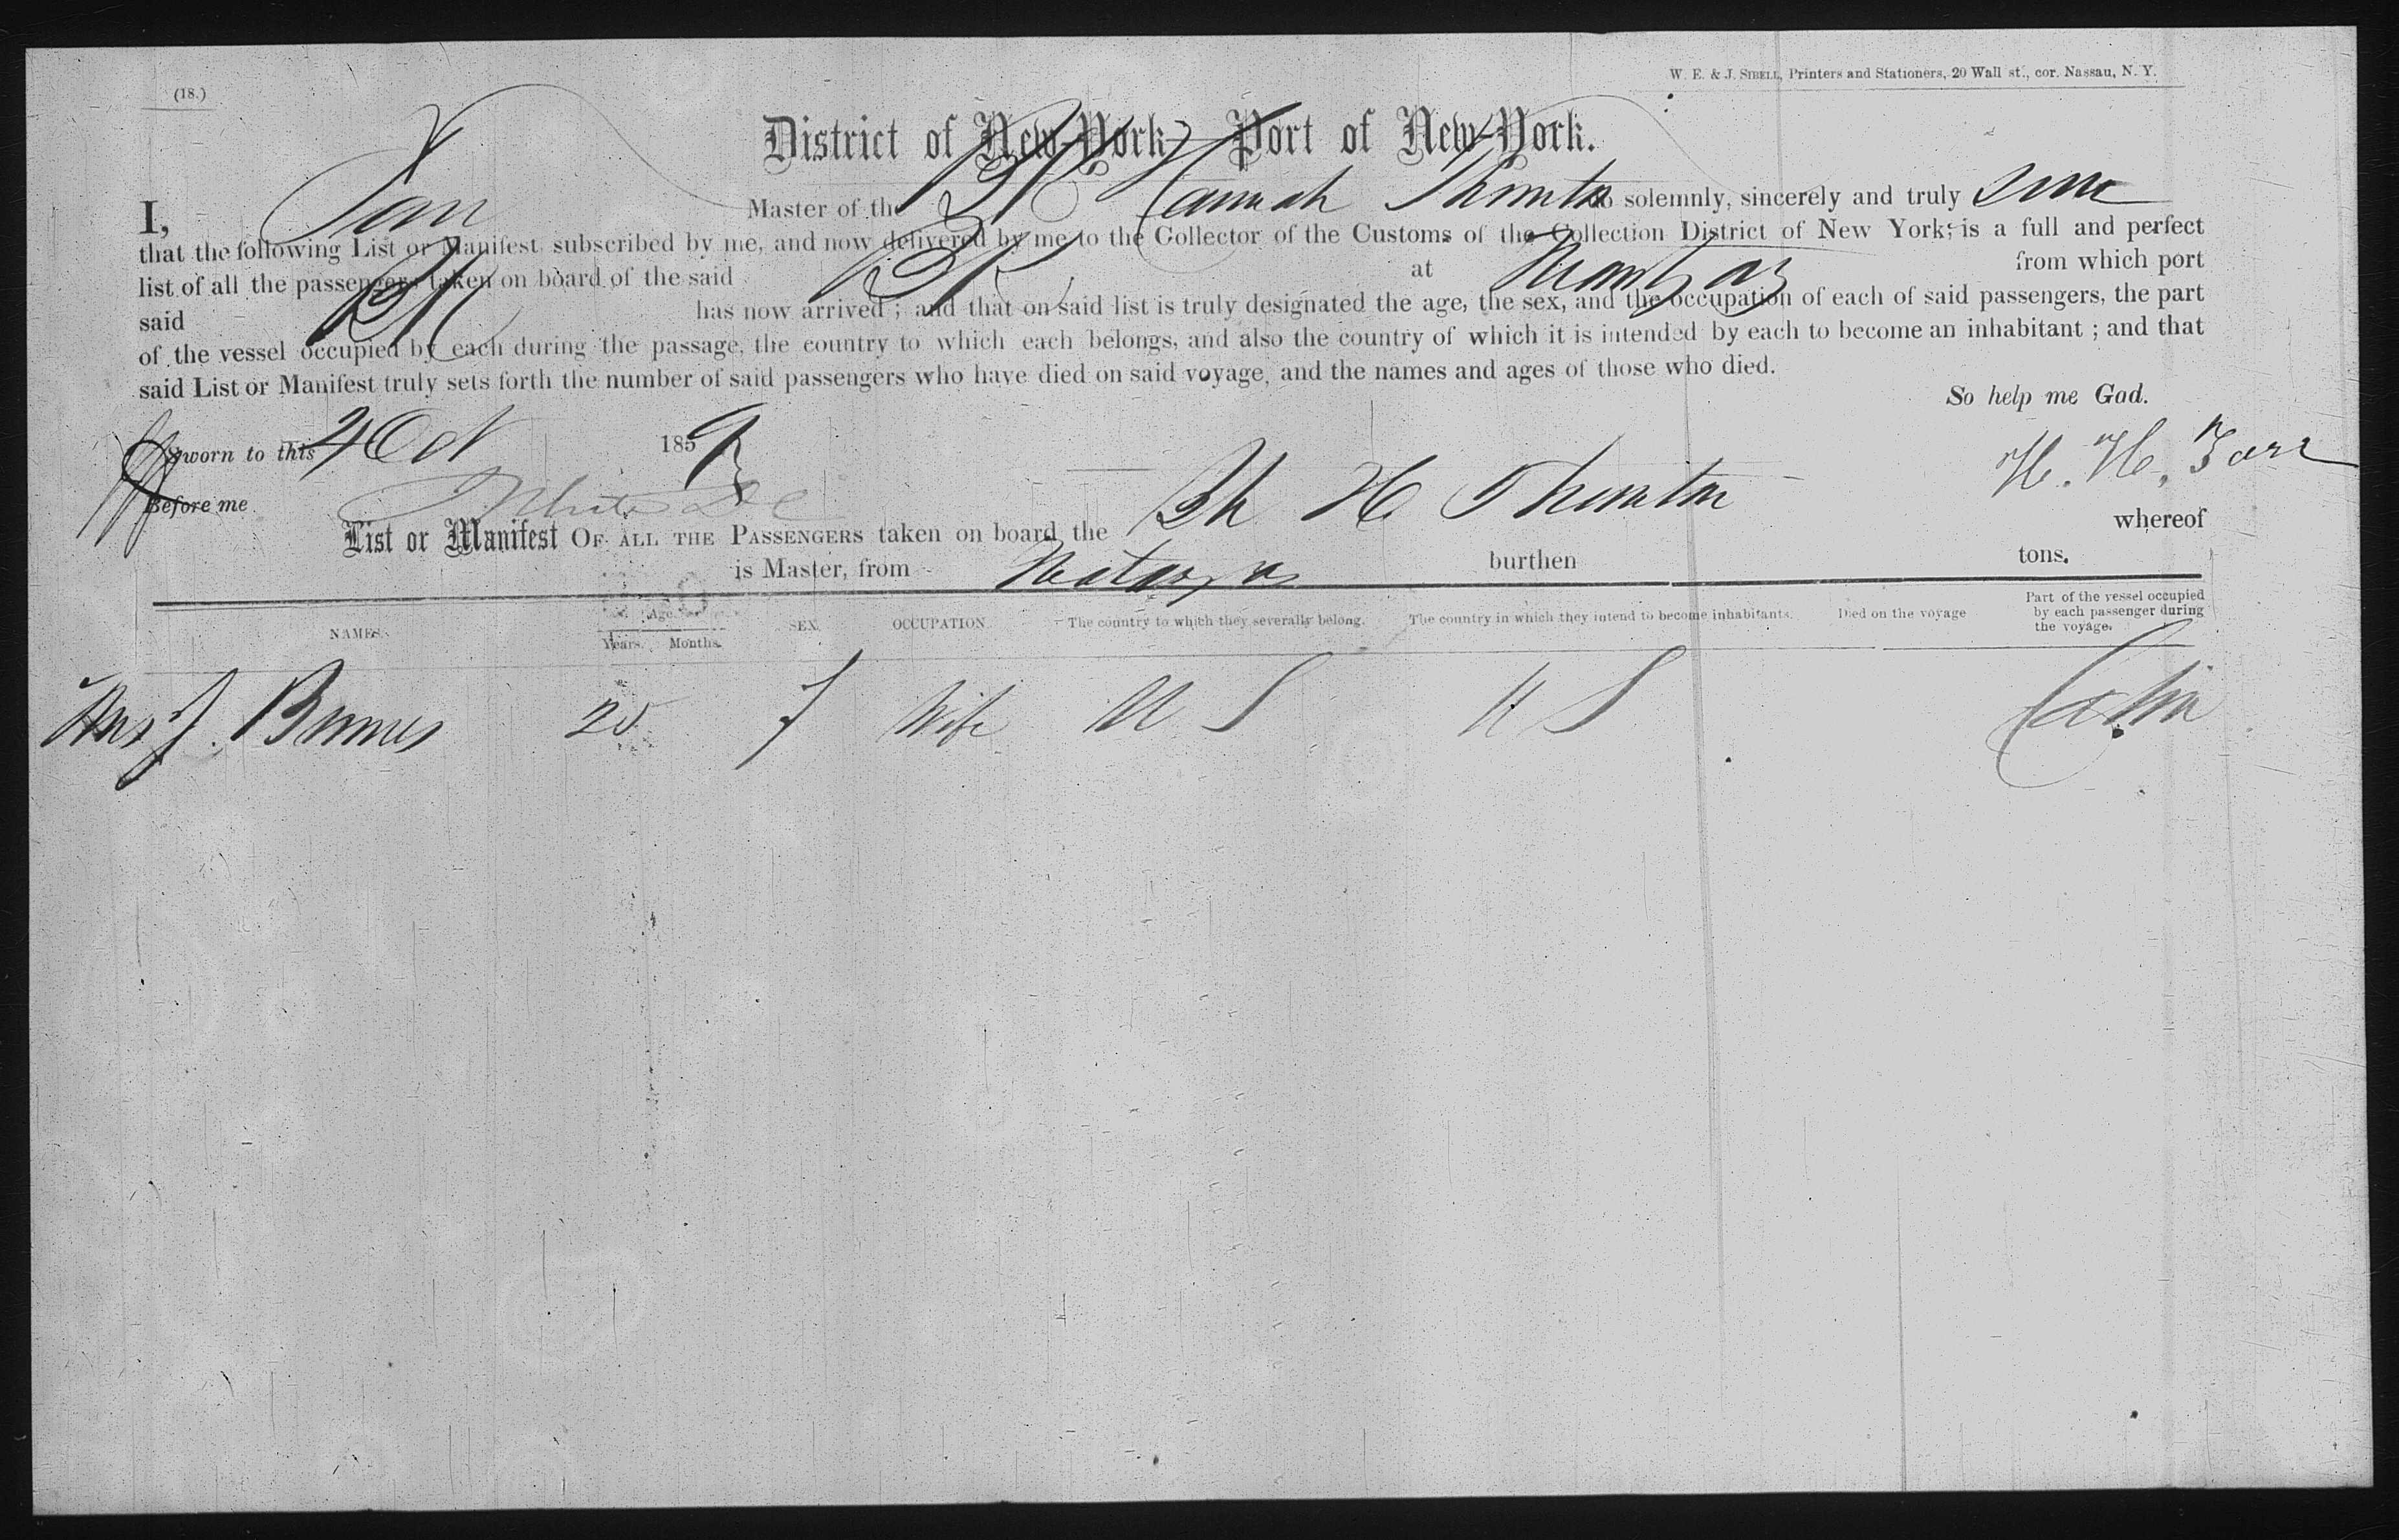 (18.)
W. E. & J. SIBELL, Printers and Stationers, 20 Wall st., cor. Nassau, N. Y.
District of New-York—Port of New-York.
I, Farr Master of the Bk Hannah Thornton do solemnly, sincerely and truly swear
that the following List or Manifest subscribed by me, and now delivered by me to the Collector of the Customs of the Collection District of New York, is a full and perfect
list of all the passengers taken on board of the said Bk at Matanzas from which port
said Bk has now arrived; and that on said list is truly designated the age, the sex, and the occupation of each of said passengers, the part
of the vessel occupied by each during the passage, the country to which each belongs, and also the country of which it is intended by each to become an inhabitant; and that
said List or Manifest truly sets forth the number of said passengers who have died on said voyage, and the names and ages of those who died.
So help me God.
Sworn to this 4 Oct 1859
H. H. Farr
Before me
List or Manifest OF ALL THE PASSENGERS taken on board the Bk H Thornton whereof
is Master, from Matanzas burthen tons.
NAMES. Age. Years. Months. SEX. OCCUPATION. The country to which they severally belong. The country in which they intend to become inhabitants. Died on the voyage Part of the vessel occupied by each passenger during the voyage.
Mrs J. 20 f Wife U S U S Cabin